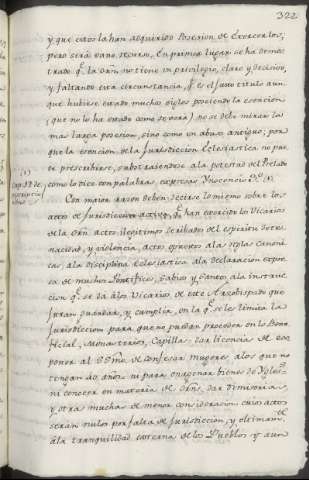 322
y que estos la han adquirido Posesion de Exercerlos,
pero será vano recurso, En primer lugar se ha demos
trado q.e la orñ no tiene un privilegio, claro y decisivo,
y faltando esta circunstancia, q.e es el Justo titulo aun
que hubiese estado muchos siglos poseiendo la esencion
(que no la ha estado como se verá) no se debe mirar la
mas larga posesion, sino como un abuso antiguo; por
que la esencion de la Jurisdiccion Eclesiastica no pue
de prescribirse, substraiendose a la potestad del Prelado
como lo dice con palabras expresas Inocencio
(1)
Con maior razon deben decirse lo mismo sobre los
actos de Jurisdiccion activa, q.e han exercido los Vicarios
de la orñ actos ilegitimos deribados del espiritu de te
nacidad, y violencia, actos opuestos a las reglas canoni
cas a la disciplina Eclesiastica a la declaracion expre
sa de muchos Pontifices, Sabios y Santos, a la instruc
cion q.e se da a los Vicarios de este Arzobispado que
Juran guardar, y cumplir, en la q.e se les limita la
Jurisdiccion para que no puedan proceder en
Monasterios, Capillas; dar licencia de ex
poner al SS.mo de Confesar mugeres, a los que no
tengan 40 años ni para enagenar bienes de Ygles.as
ni conocer en materia de dimisorias
y otras muchas de menor consideracion cuios actos
serán nulos por falta de Jurisdiccion, y
a la tranquilidad externa de los Pueblos y aun